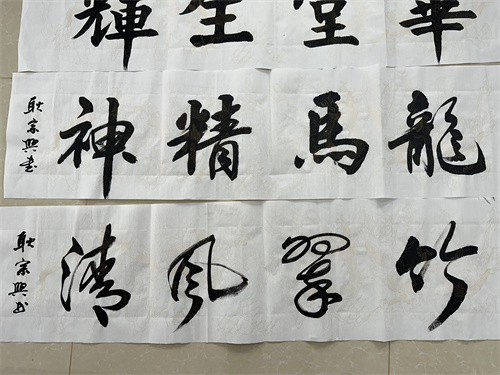 華堂生輝
龍馬精神
耿宗興書
竹翠风清
耿宗興书